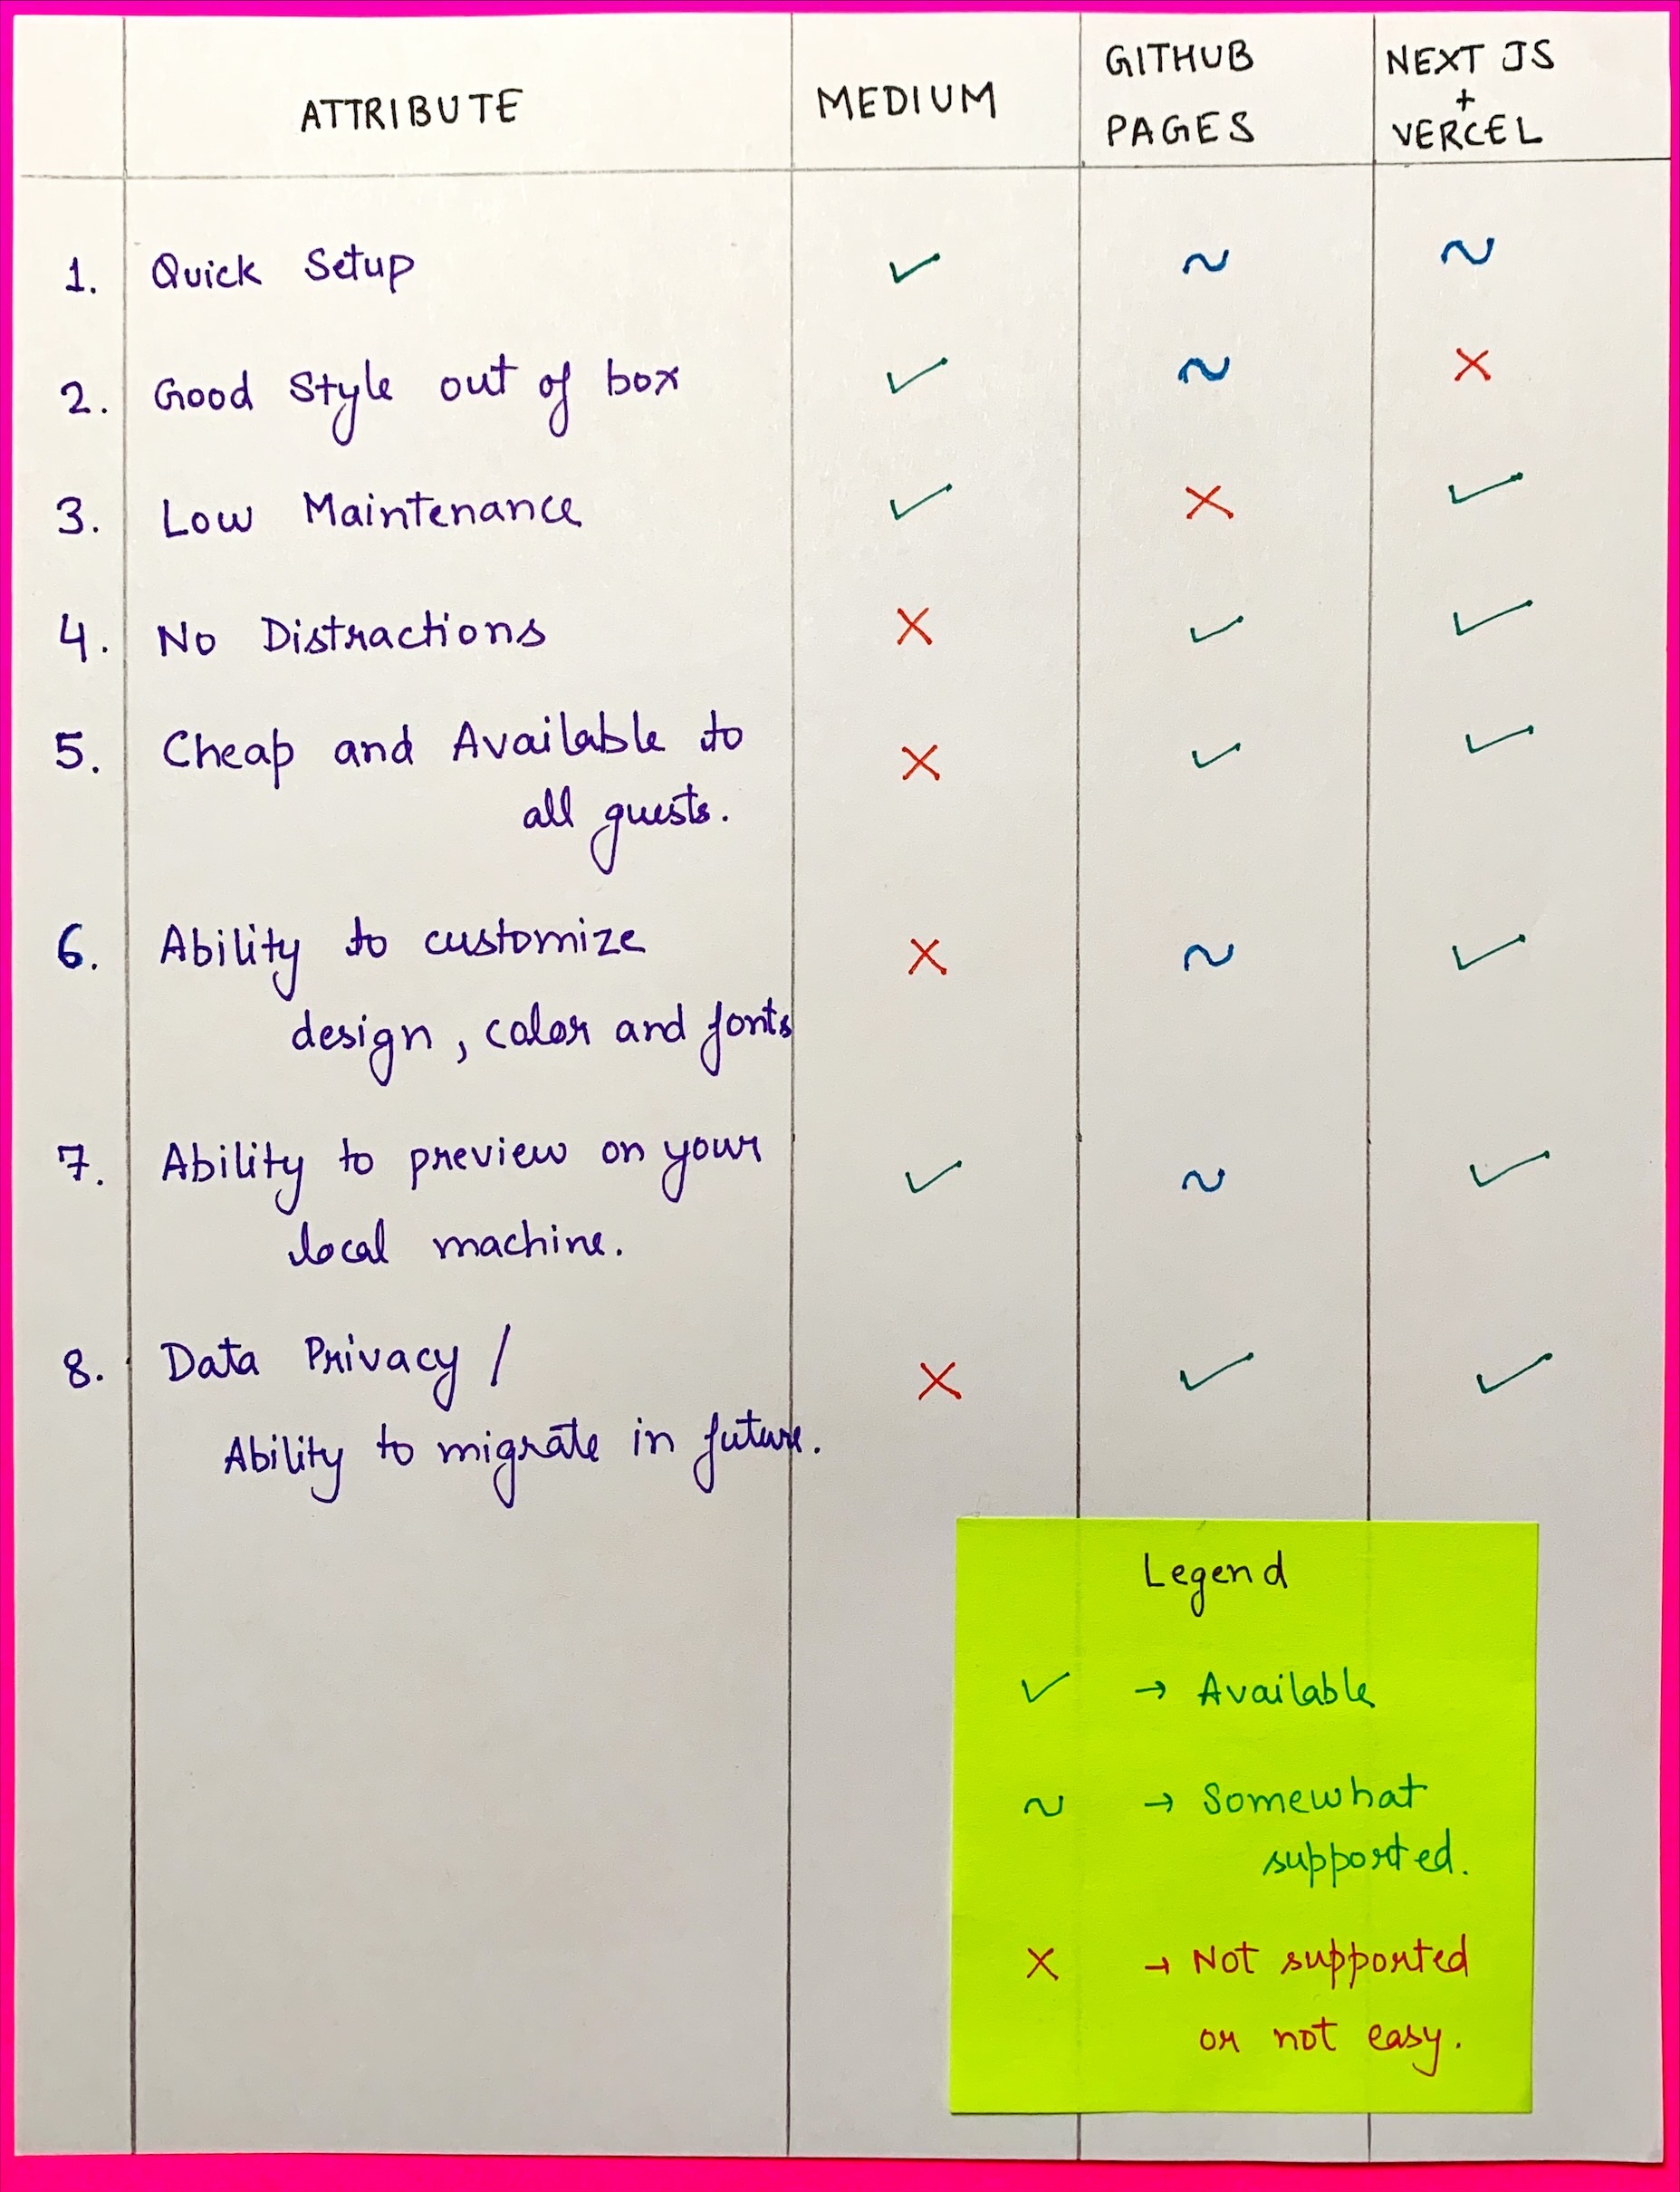 ATTRIBUTE MEDIUM GITHUB PAGES NEXT JS + VERCEL
1. Quick Setup ✓ ~ ~
2. Good Style out of box ✓ ~ ✗
3. Low Maintenance ✓ ✗ ✓
4. No Distractions ✗ ✓ ✓
5. Cheap and Available to ✗ ✓ ✓
all guests.
6. Ability to customize ✗ ~ ✓
design, color and fonts
7. Ability to preview on your ✓ ~ ✓
local machine.
8. Data Privacy / ✗ ✓ ✓
Ability to migrate in future.
Legend
✓ → Available
~ → Somewhat
supported.
✗ → Not supported
or not easy.